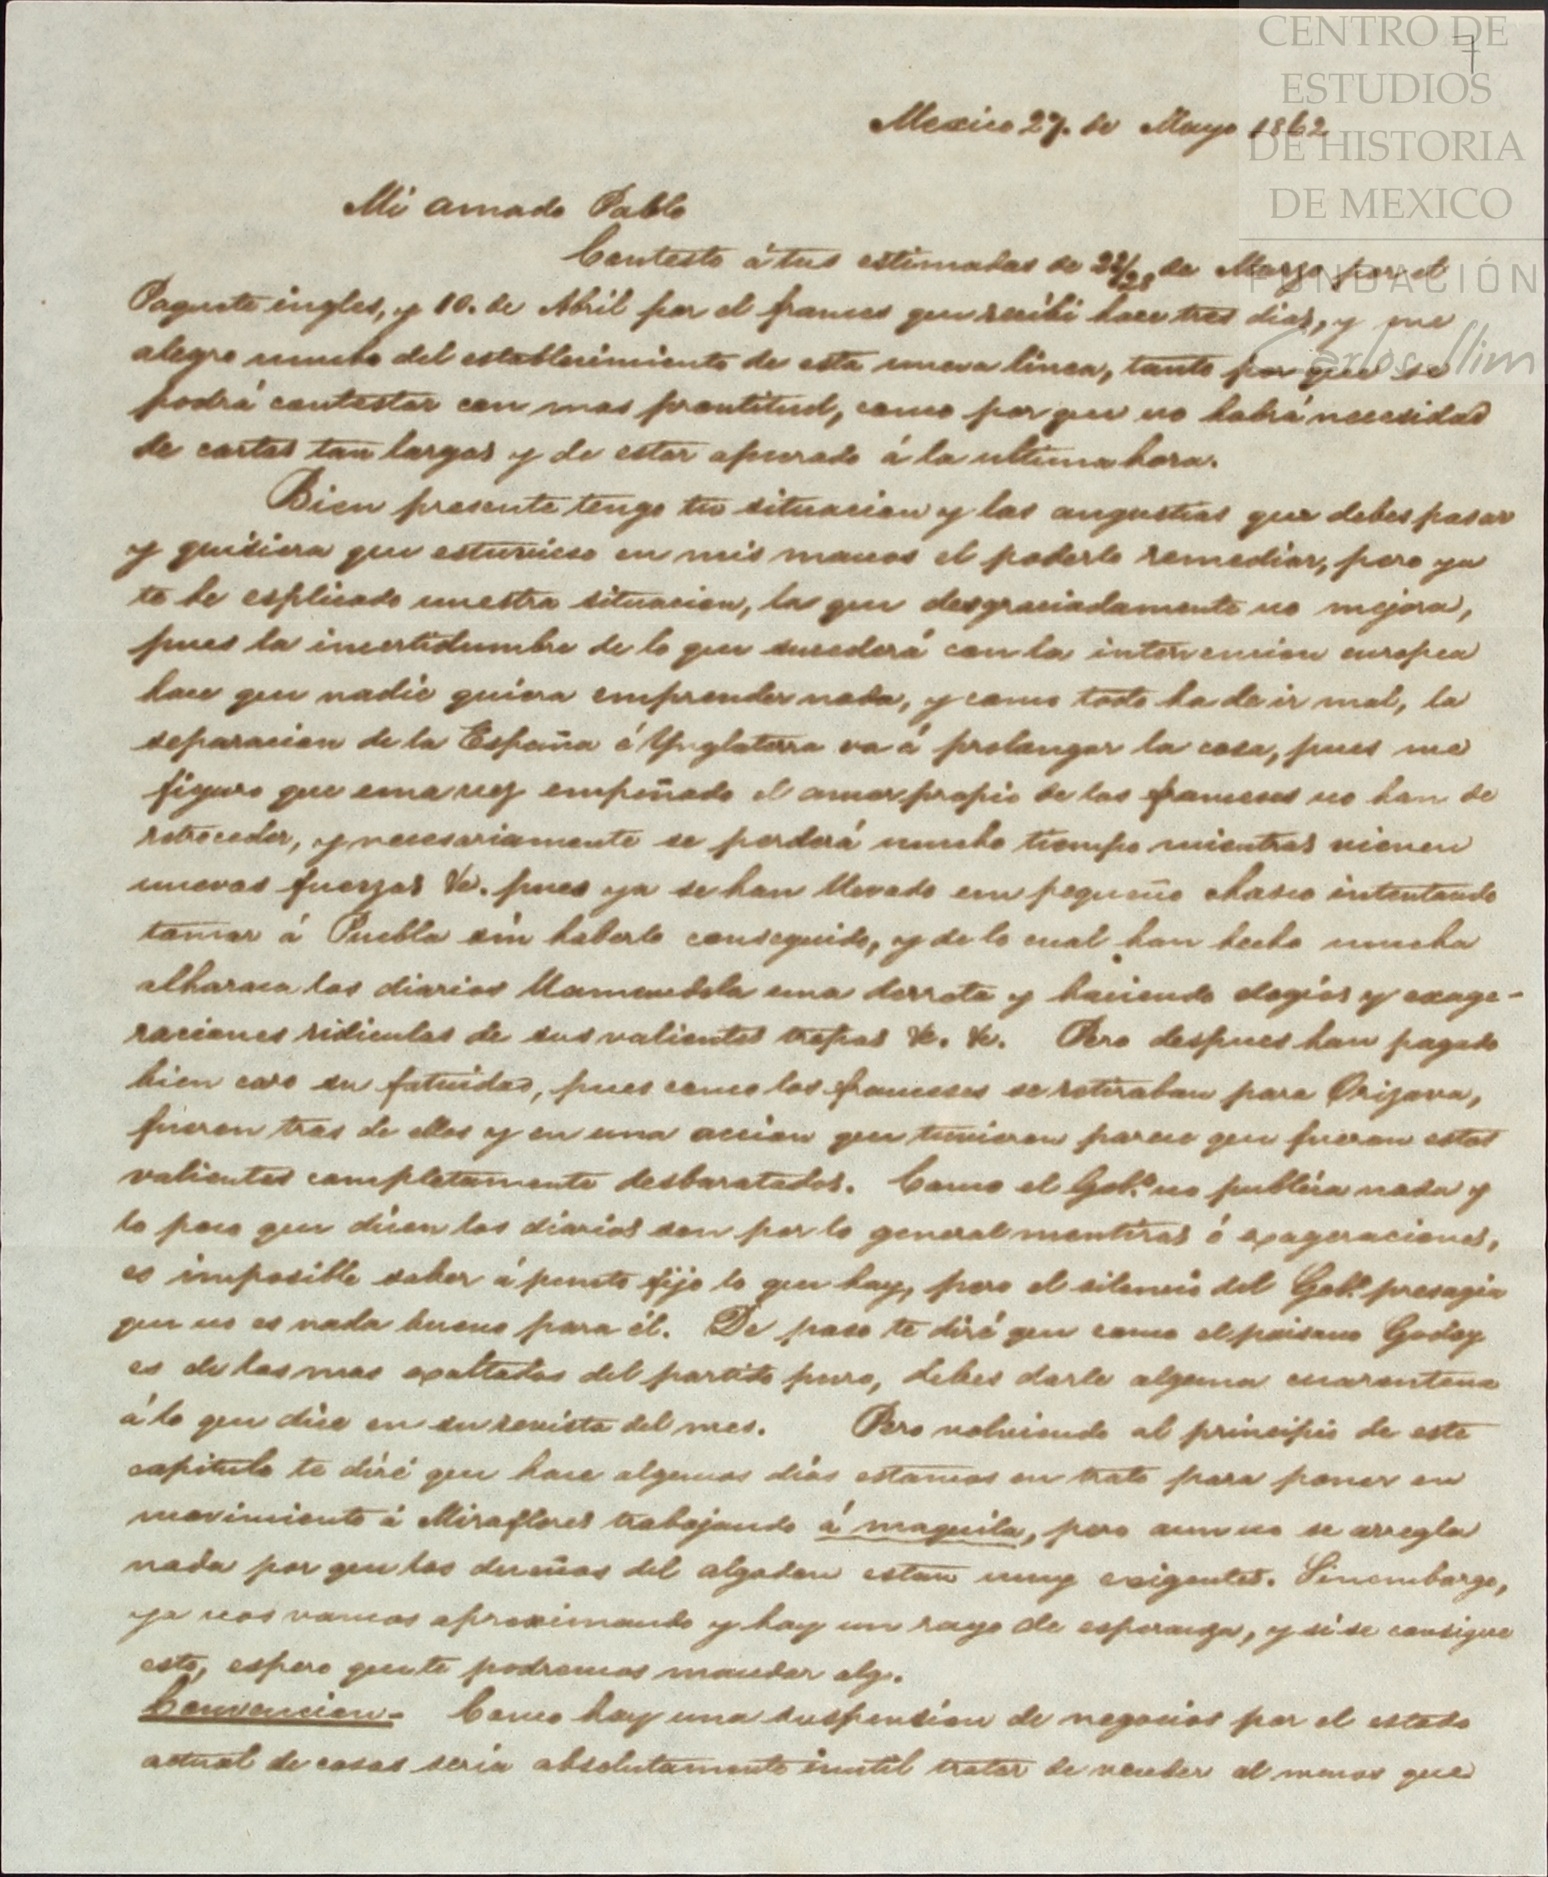 CENTRO DE
ESTUDIOS
DE HISTORIA
DE MEXICO
FUNDACIÓN
Carlos Slim
7
Mexico 27. de Mayo 1862
Mi amado Pablo
Contesto á tus estimadas de /28 de Marzo por el
Paquete ingles, y 10. de Abril por el frances que recibi hace tres dias, y me
alegro mucho del establecimiento de esta nueva linea, tanto por que se
podrá contestar con mas prontitud, como por que no habrá necesidad
de cartas tan largas y de estar apurado á la ultima hora.
Bien presente tengo tu situacion y las angustias que debes pasar
y quisiera que estuviese en mis manos el poderlo remediar, pero ya
te he esplicado nuestra situacion, la que desgraciadamente no mejora,
pues la incertidumbre de lo que sucederá con la intervencion europea
hace que nadie quiera emprender nada, y como todo ha de ir mal, la
separacion de la España é Ynglaterra va á prolongar la cosa, pues me
figuro que una vez empeñado el amor propio de los franceses no han de
retroceder, y necesariamente se perderá mucho tiempo mientras vienen
nuevas fuerzas &c. pues ya se han llevado un pequeño chasco intentando
tomar á Puebla sin haberlo conseguido, y de lo cual han hecho mucha
alharaca los diarios llamandola una derrota y haciendo elogios y exage-
raciones ridiculas de sus valientes tropas &c. &c. Pero despues han pagado
bien caro su fatuidad, pues como los franceses se retiraban para Orizava,
fueron tras de ellos y en una accion que tuvieron parece que fueron estos
valientes completamente desbaratados. Como el Gob.º no publica nada y
lo poco que dicen los diarios son por lo general mentiras ó exageraciones,
es imposible saber á punto fijo lo que hay, pero el silencio del Gob.º presagia
que no es nada bueno para él. De paso te diré que como el paisano Godoy
es de los mas exaltados del partido puro, debes darle alguna cuarentena
á lo que dice en su revista del mes. Pero volviendo al principio de este
capitulo te diré que hace algunos dias estamos en trato para poner en
movimiento á Miraflores trabajando á maquila, pero aun no se arregla
nada por que los dueños del algodon estan muy exigentes. Sinembargo,
ya nos vamos aproximando y hay un rayo de esperanza, y si se consigue
esto, espero que te podremos mandar alg.
Convencion- Como hay una suspension de negocios por el estado
actual de cosas seria absolutamente inutil tratar de vender al menos que